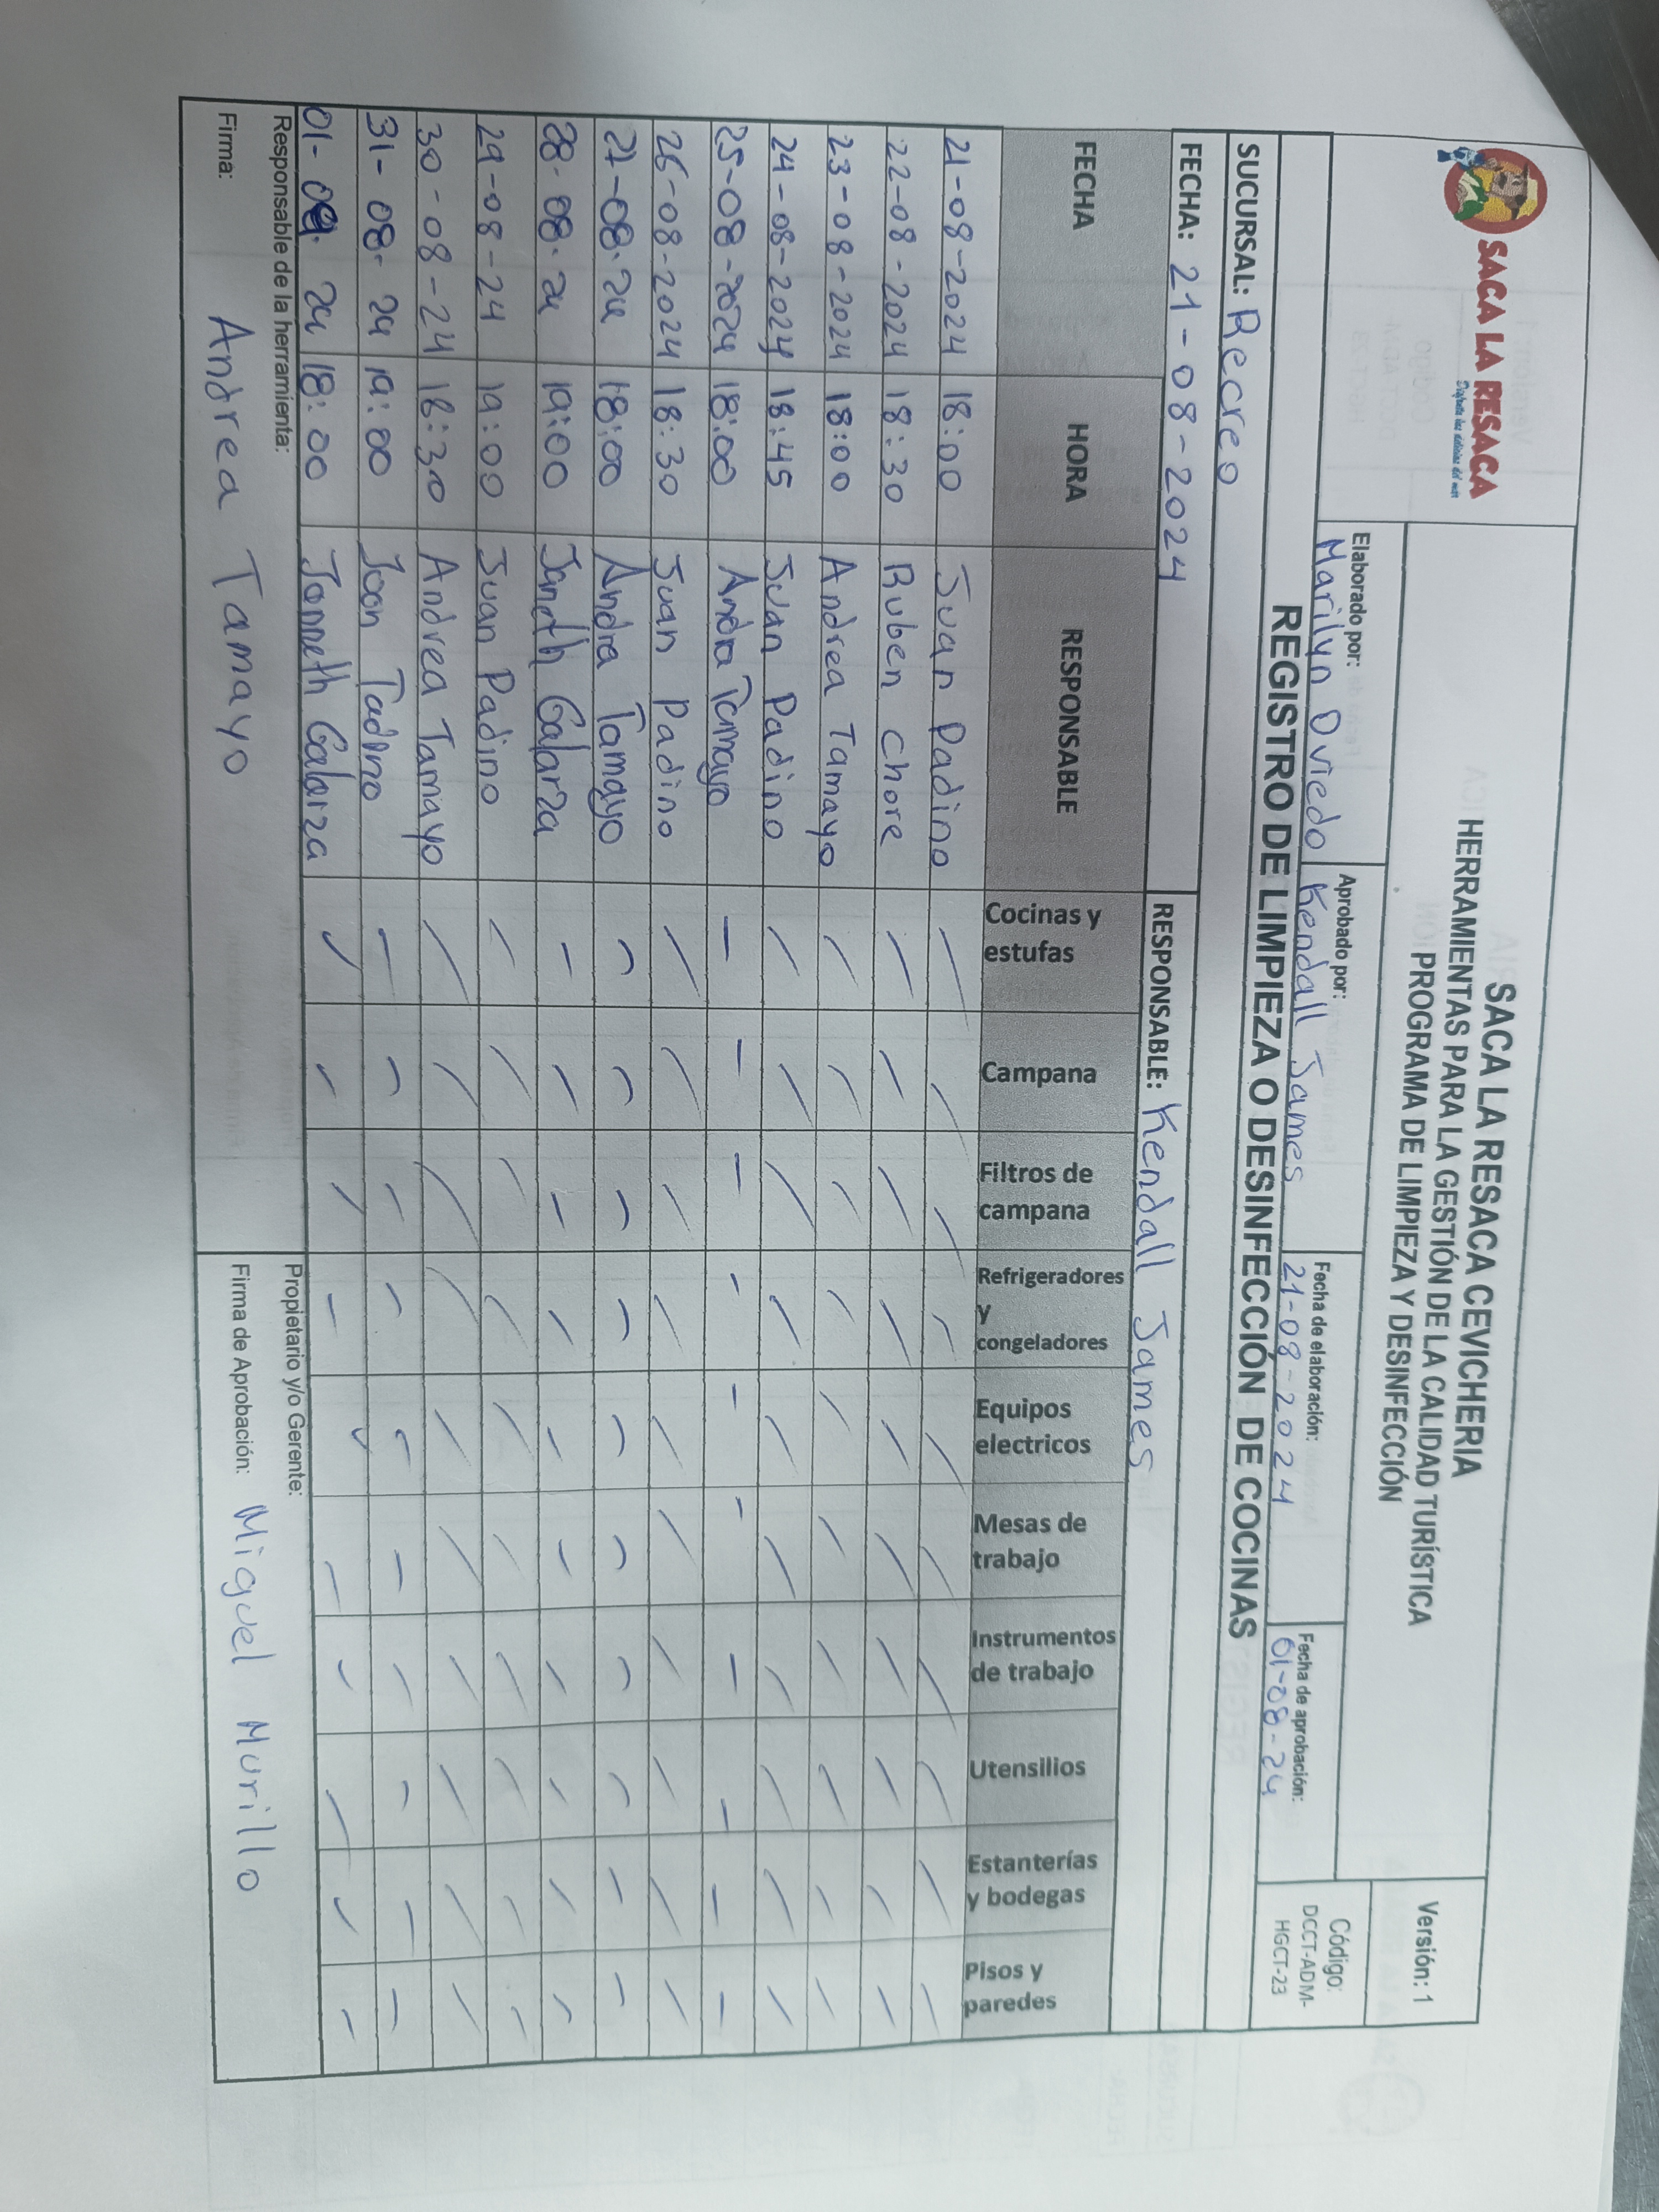 SACA LA RESACA
Disfruta las delicias del mar
SACA LA RESACA CEVICHERIA
HERRAMIENTAS PARA LA GESTIÓN DE LA CALIDAD TURÍSTICA
PROGRAMA DE LIMPIEZA Y DESINFECCIÓN
Versión: 1
Elaborado por: Marilyn Oviedo
Aprobado por: Kendall James
Fecha de elaboración: 21-08-2024
Fecha de aprobación: 01-08-24
Código: DCCT-ADM-HGCT-23
REGISTRO DE LIMPIEZA O DESINFECCIÓN DE COCINAS
SUCURSAL: Recreo
FECHA: 21-08-2024 RESPONSABLE: Kendall James
FECHA HORA RESPONSABLE Cocinas y estufas Campana Filtros de campana Refrigeradores y congeladores Equipos electricos Mesas de trabajo Instrumentos de trabajo Utensilios Estanterías y bodegas Pisos y paredes
21-08-2024 18:00 Juan Padino
22-08-2024 18:30 Ruben Chore
23-08-2024 18:00 Andrea Tamayo
24-08-2024 18:45 Juan Padino
25-08-2024 18:00 Andra Tamayo
26-08-2024 18:30 Juan Padino
27-08-24 18:00 Andra Tamayo
28-08-24 19:00 Janeth Galarza
29-08-24 19:00 Juan Padino
30-08-24 18:30 Andrea Tamayo
31-08-24 19:00
01-09-24 18:00 Janneth Galarza
Responsable de la herramienta:
Firma: Andrea Tamayo
Propietario y/o Gerente:
Firma de Aprobación: Miguel Murillo